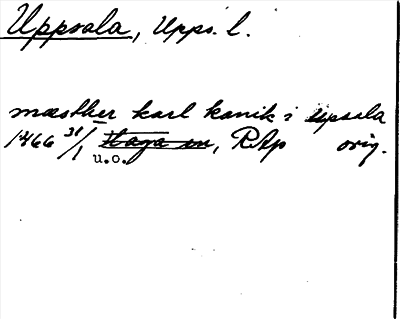 Uppsala, Upps. l.
mæsther karl kanik i upsala
1466 31/1 Haga in, RAp orig.
u.o.